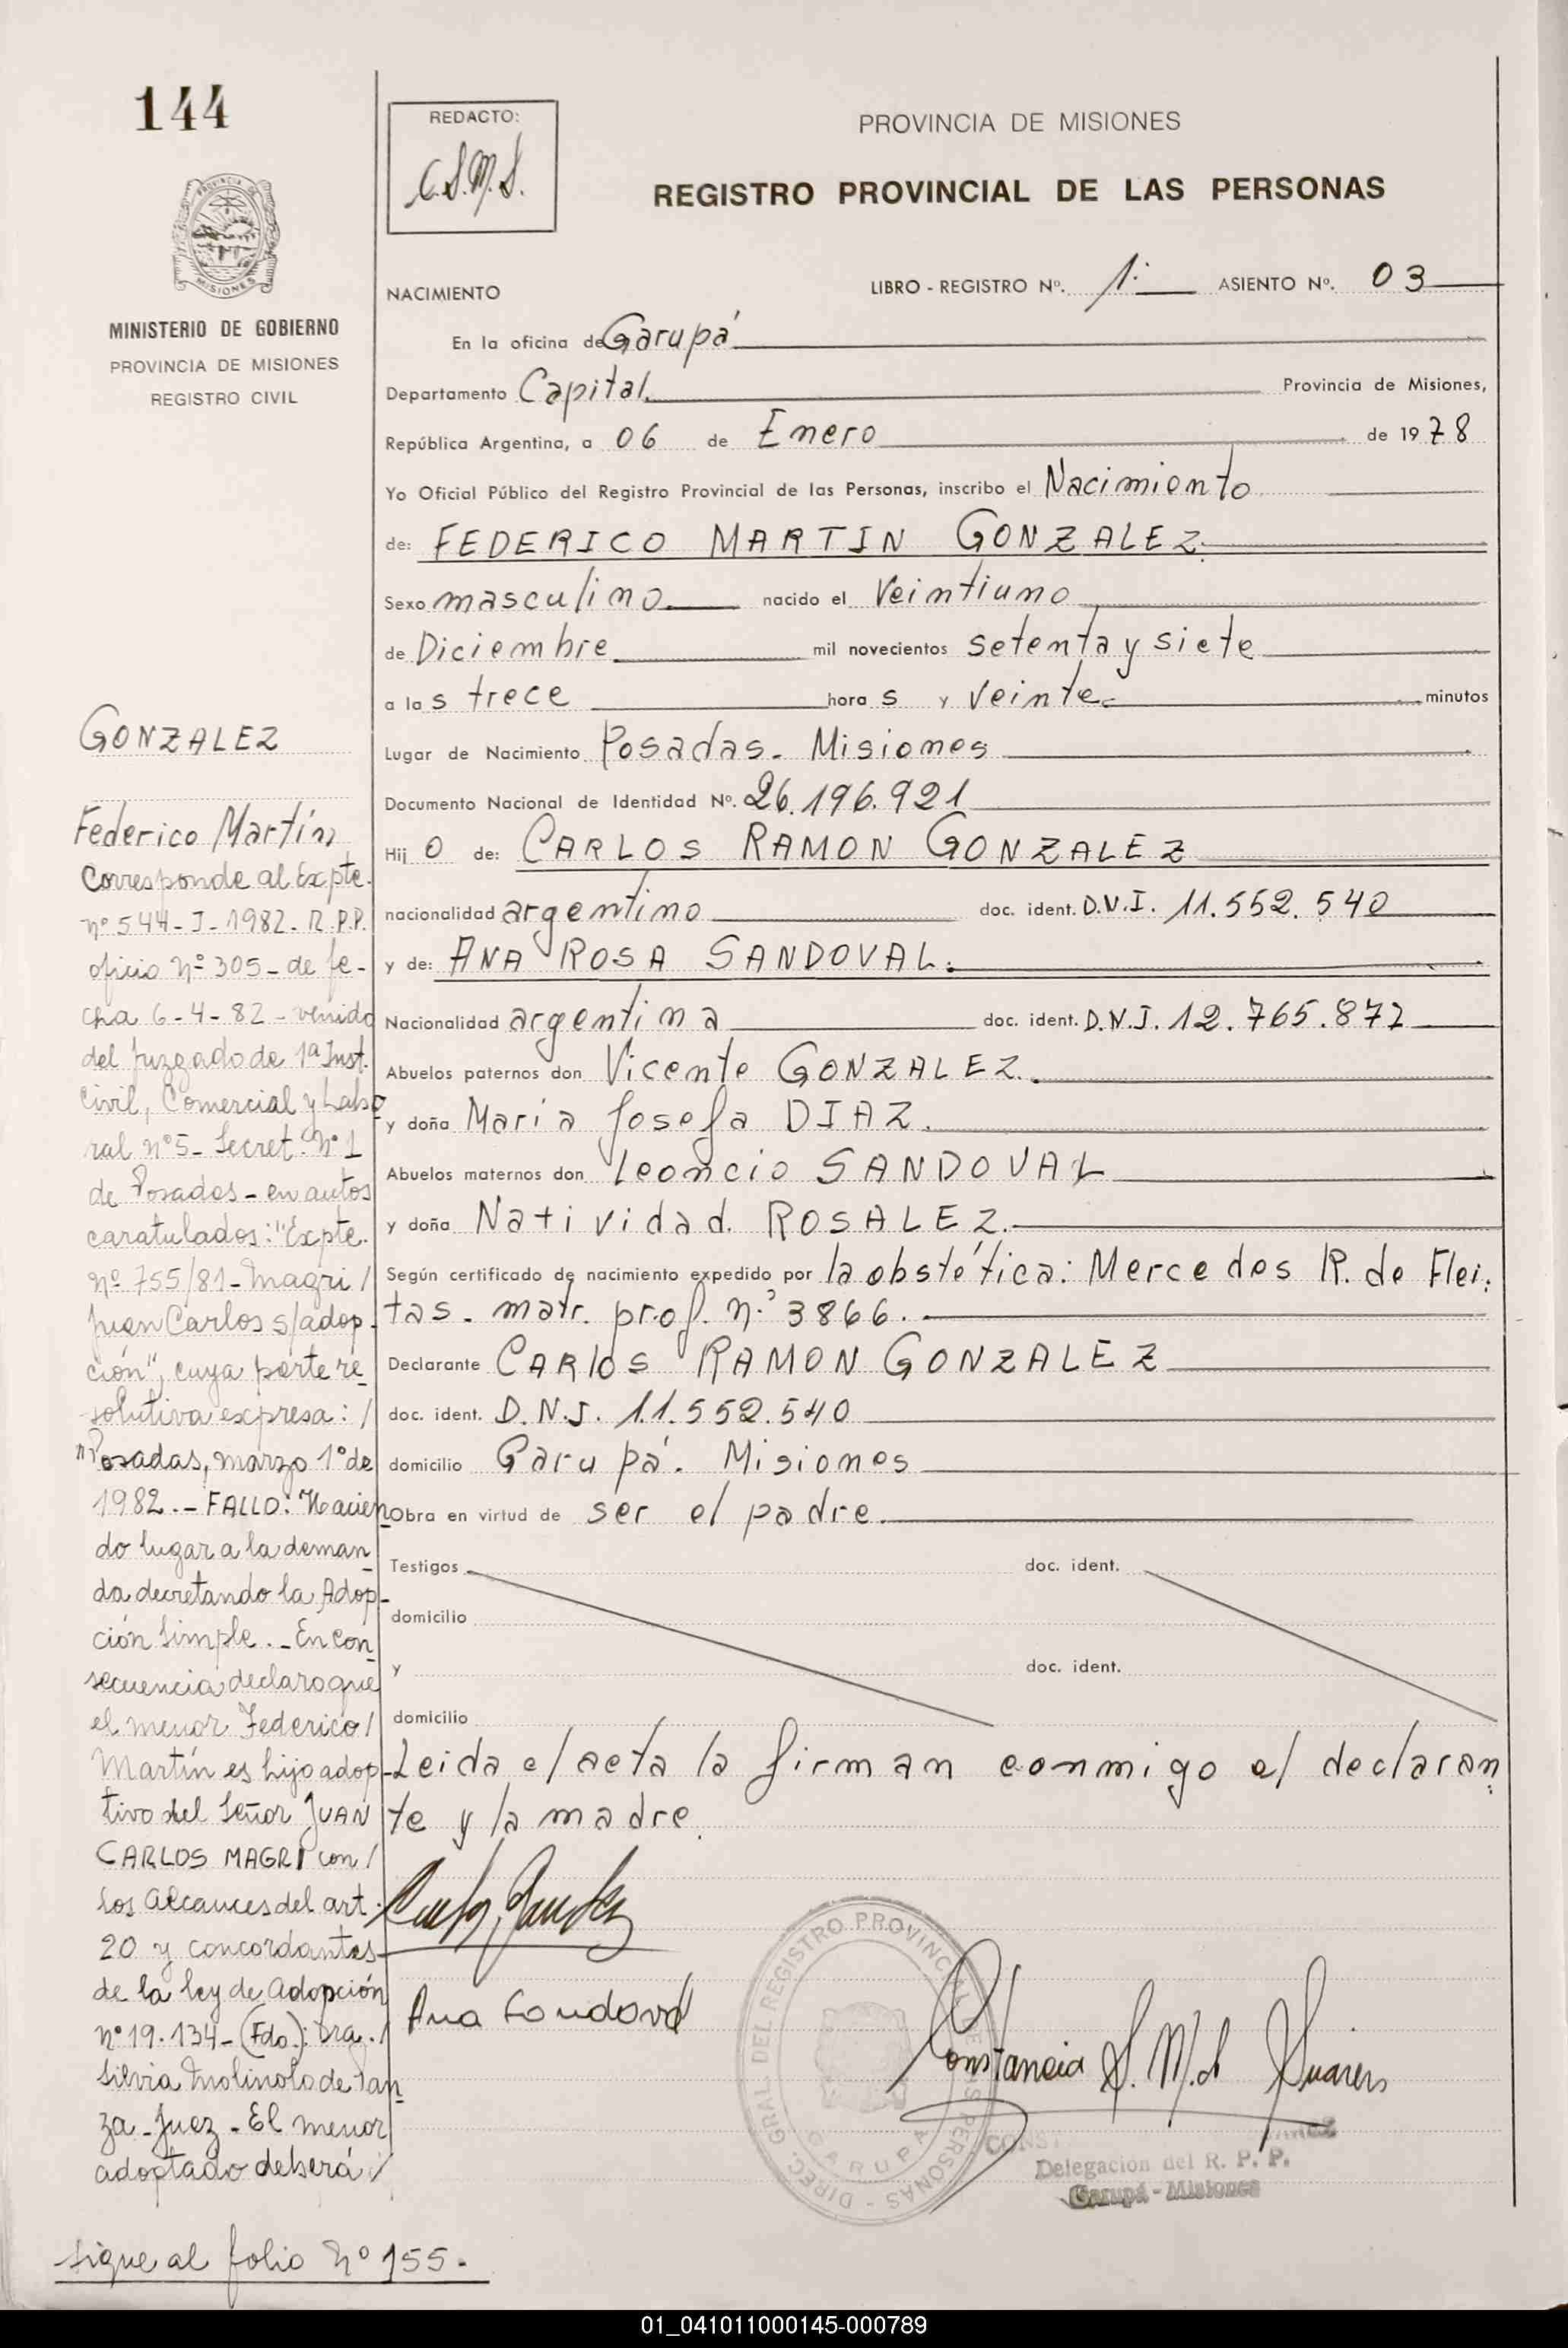 144
MINISTERIO DE GOBIERNO
PROVINCIA DE MISIONES
REGISTRO CIVIL
REDACTO:
C.S.M.S.
PROVINCIA DE MISIONES
REGISTRO PROVINCIAL DE LAS PERSONAS
NACIMIENTO
LIBRO - REGISTRO Nº. 1: ASIENTO Nº. 03
En la oficina de Garupá
Departamento Capital. Provincia de Misiones,
República Argentina, a 06 de Enero de 1978
Yo Oficial Público del Registro Provincial de las Personas, inscribo el Nacimiento
de: FEDERICO MARTIN GONZALEZ.
Sexo masculino nacido el Veintiuno
de Diciembre mil novecientos setenta y siete
a las trece horas y veinte minutos
Lugar de Nacimiento Posadas. Misiones
Documento Nacional de Identidad Nº. 26.196.921
Hijo de: CARLOS RAMON GONZALEZ
nacionalidad argentino doc. ident. D.N.I. 11.552.540
y de: ANA ROSA SANDOVAL.
Nacionalidad argentina doc. ident. D.N.I. 12.765.872
Abuelos paternos don Vicente GONZALEZ.
y doña María Josefa DIAZ.
Abuelos maternos don Leoncio SANDOVAL
y doña Natividad ROSALEZ.
Según certificado de nacimiento expedido por la obstética: Mercedes R. de Flei.
tas. matr. prof. nº 3866.
Declarante CARLOS RAMON GONZALEZ
doc. ident. D.N.I. 11.552.540
domicilio Garupá. Misiones
Obra en virtud de ser el padre.
Testigos doc. ident.
domicilio
y doc. ident.
domicilio
Leida el acta la firman conmigo el declaran
te y la madre.
Ana Sandoval
Constancia S. M. d Suares
DIREC. GRAL. DEL REGISTRO PROVINCIAL DE LAS PERSONAS - GARUPA
Delegación del R. P. P.
Garupá - Misiones
GONZALEZ
Federico Martín
Corresponde al Expte.
nº 544-I-1982-R.P.P.
oficio nº 305-de fe-
cha 6-4-82-venido
del juzgado de 1ª Inst.
Civil, Comercial y Labo
ral nº5-Secret. nº 1
de Posadas-en autos
caratulados: "Expte.
nº 755/81-Magri/
Juan Carlos s/adop.
ción", cuya parte re
solutiva expresa:/
"Posadas, marzo 1º de
1982.-FALLO: Hacien
do lugar a la deman
da decretando la Adop-
ción Simple.-En con
secuencia declaro que
el menor Federico/
Martín es hijo adop-
tivo del Señor JUAN
CARLOS MAGRI con/
los alcances del art.
20 y concordantes
de la ley de Adopción
nº 19.134-(Fdo.): Dra./
Silvia Molinolo de Pan
za-Juez-El menor
adoptado deberá/
Sigue al folio Nº 155.
01_041011000145-000789